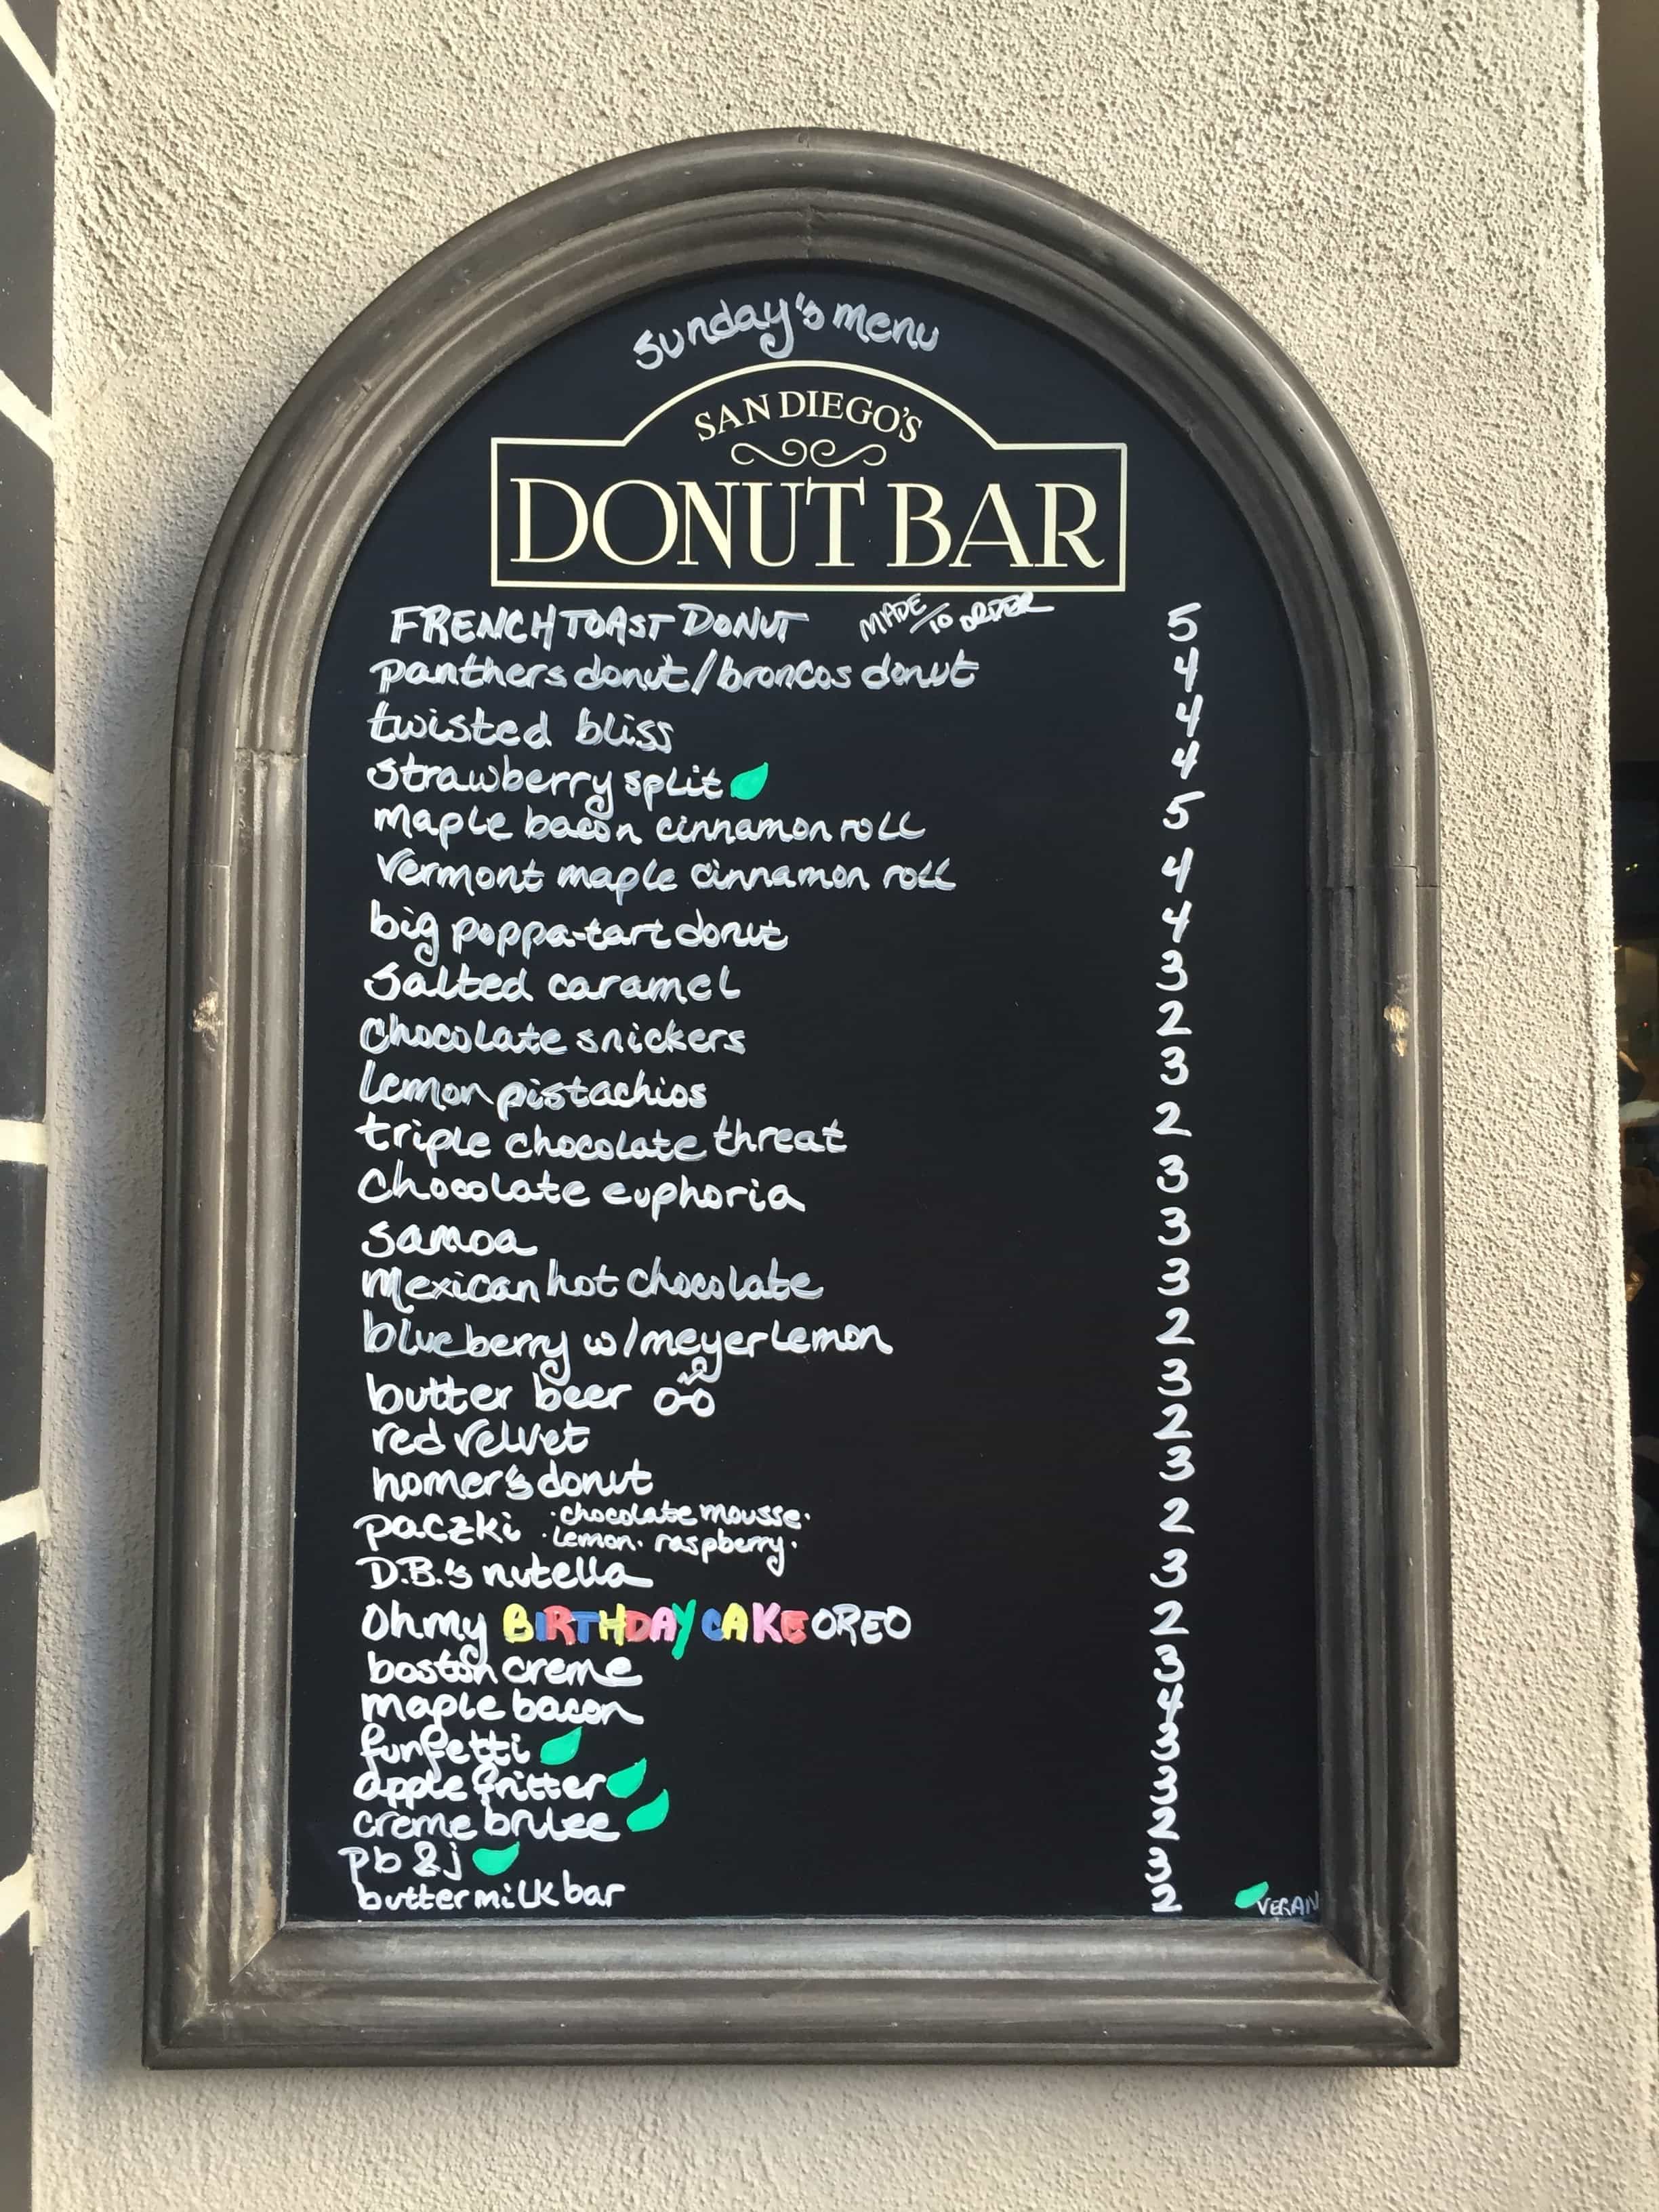 sunday's menu
SAN DIEGO'S
DONUT BAR
FRENCH TOAST DONUT MADE TO ORDER 5
panthers donut/broncos donut 4
twisted bliss 4
strawberry split 4
maple bacon cinnamon roll 5
vermont maple cinnamon roll 4
big poppa-tart donut 4
salted caramel 3
chocolate snickers 2
lemon pistachios 3
triple chocolate threat 2
chocolate euphoria 3
samoa 3
mexican hot chocolate 3
blueberry w/meyer lemon 2
butter beer 3
red velvet 2
homer's donut 3
paczki · chocolate mousse · 2
· lemon · raspberry ·
D.B.'s nutella 3
Oh my BIRTHDAY CAKE OREO 2
boston creme 3
maple bacon 4
funfetti 3
apple fritter 3
creme brulee 2
pb & j 3
buttermilk bar 2
VEGAN